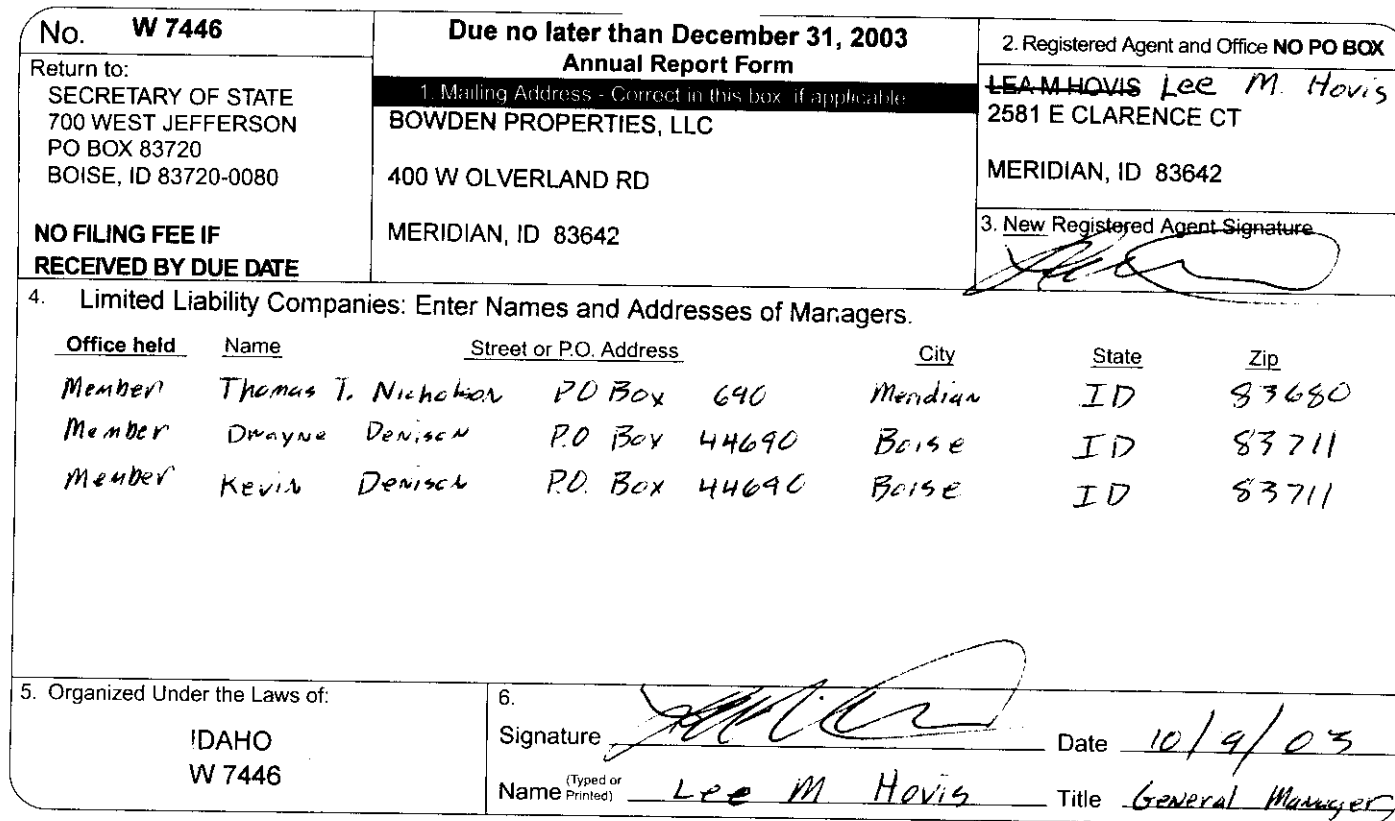 No. W 7446
Return to:
SECRETARY OF STATE
700 WEST JEFFERSON
PO BOX 83720
BOISE, ID 83720-0080
NO FILING FEE IF
RECEIVED BY DUE DATE
Due no later than December 31, 2003
Annual Report Form
1. Mailing Address - Correct in this box if applicable
BOWDEN PROPERTIES, LLC
400 W OLVERLAND RD
MERIDIAN, ID 83642
2. Registered Agent and Office NO PO BOX
LEA M HOVIS Lee M. Hovis
2581 E CLARENCE CT
MERIDIAN, ID 83642
3. New Registered Agent Signature
4. Limited Liability Companies: Enter Names and Addresses of Managers.
Office held Name Street or P.O. Address City State Zip
Member Thomas T. Nicholson PO Box 690 Meridian ID 83680
Member Dwayne Denison P.O Box 44690 Boise ID 83711
Member Kevin Denison P.O. Box 44690 Boise ID 83711
5. Organized Under the Laws of:
IDAHO
W 7446
6.
Signature Date 10/9/03
Name (Typed or Printed) Lee M Hovis Title General Manager